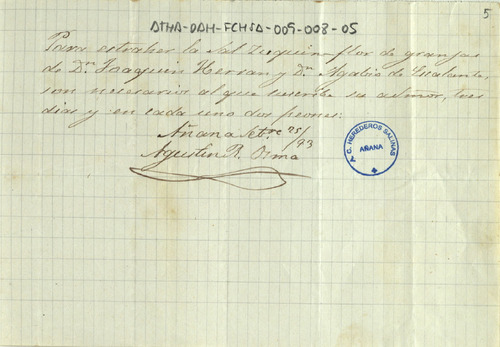 5
ATHA-DAH-FCHSA-009-008-05
Para estraher la sal Zuquin-flor de granjas
de Dn Joaquin Herran y Dn Agabio de Escalante,
son necesarios al que suscribe su admor, tres
dias y en cada uno dos peones:
Añana Setre 25/93
Agustin R. Osma
C. HEREDEROS SALINAS
AÑANA